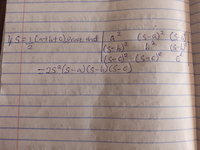 If S = 1/2 (a+b+c), prove that | a² (s-a)² (s-
(s-b)² b² (s-b)
(s-c)² (s-c)² c
= 2s³(s-a)(s-b)(s-c)